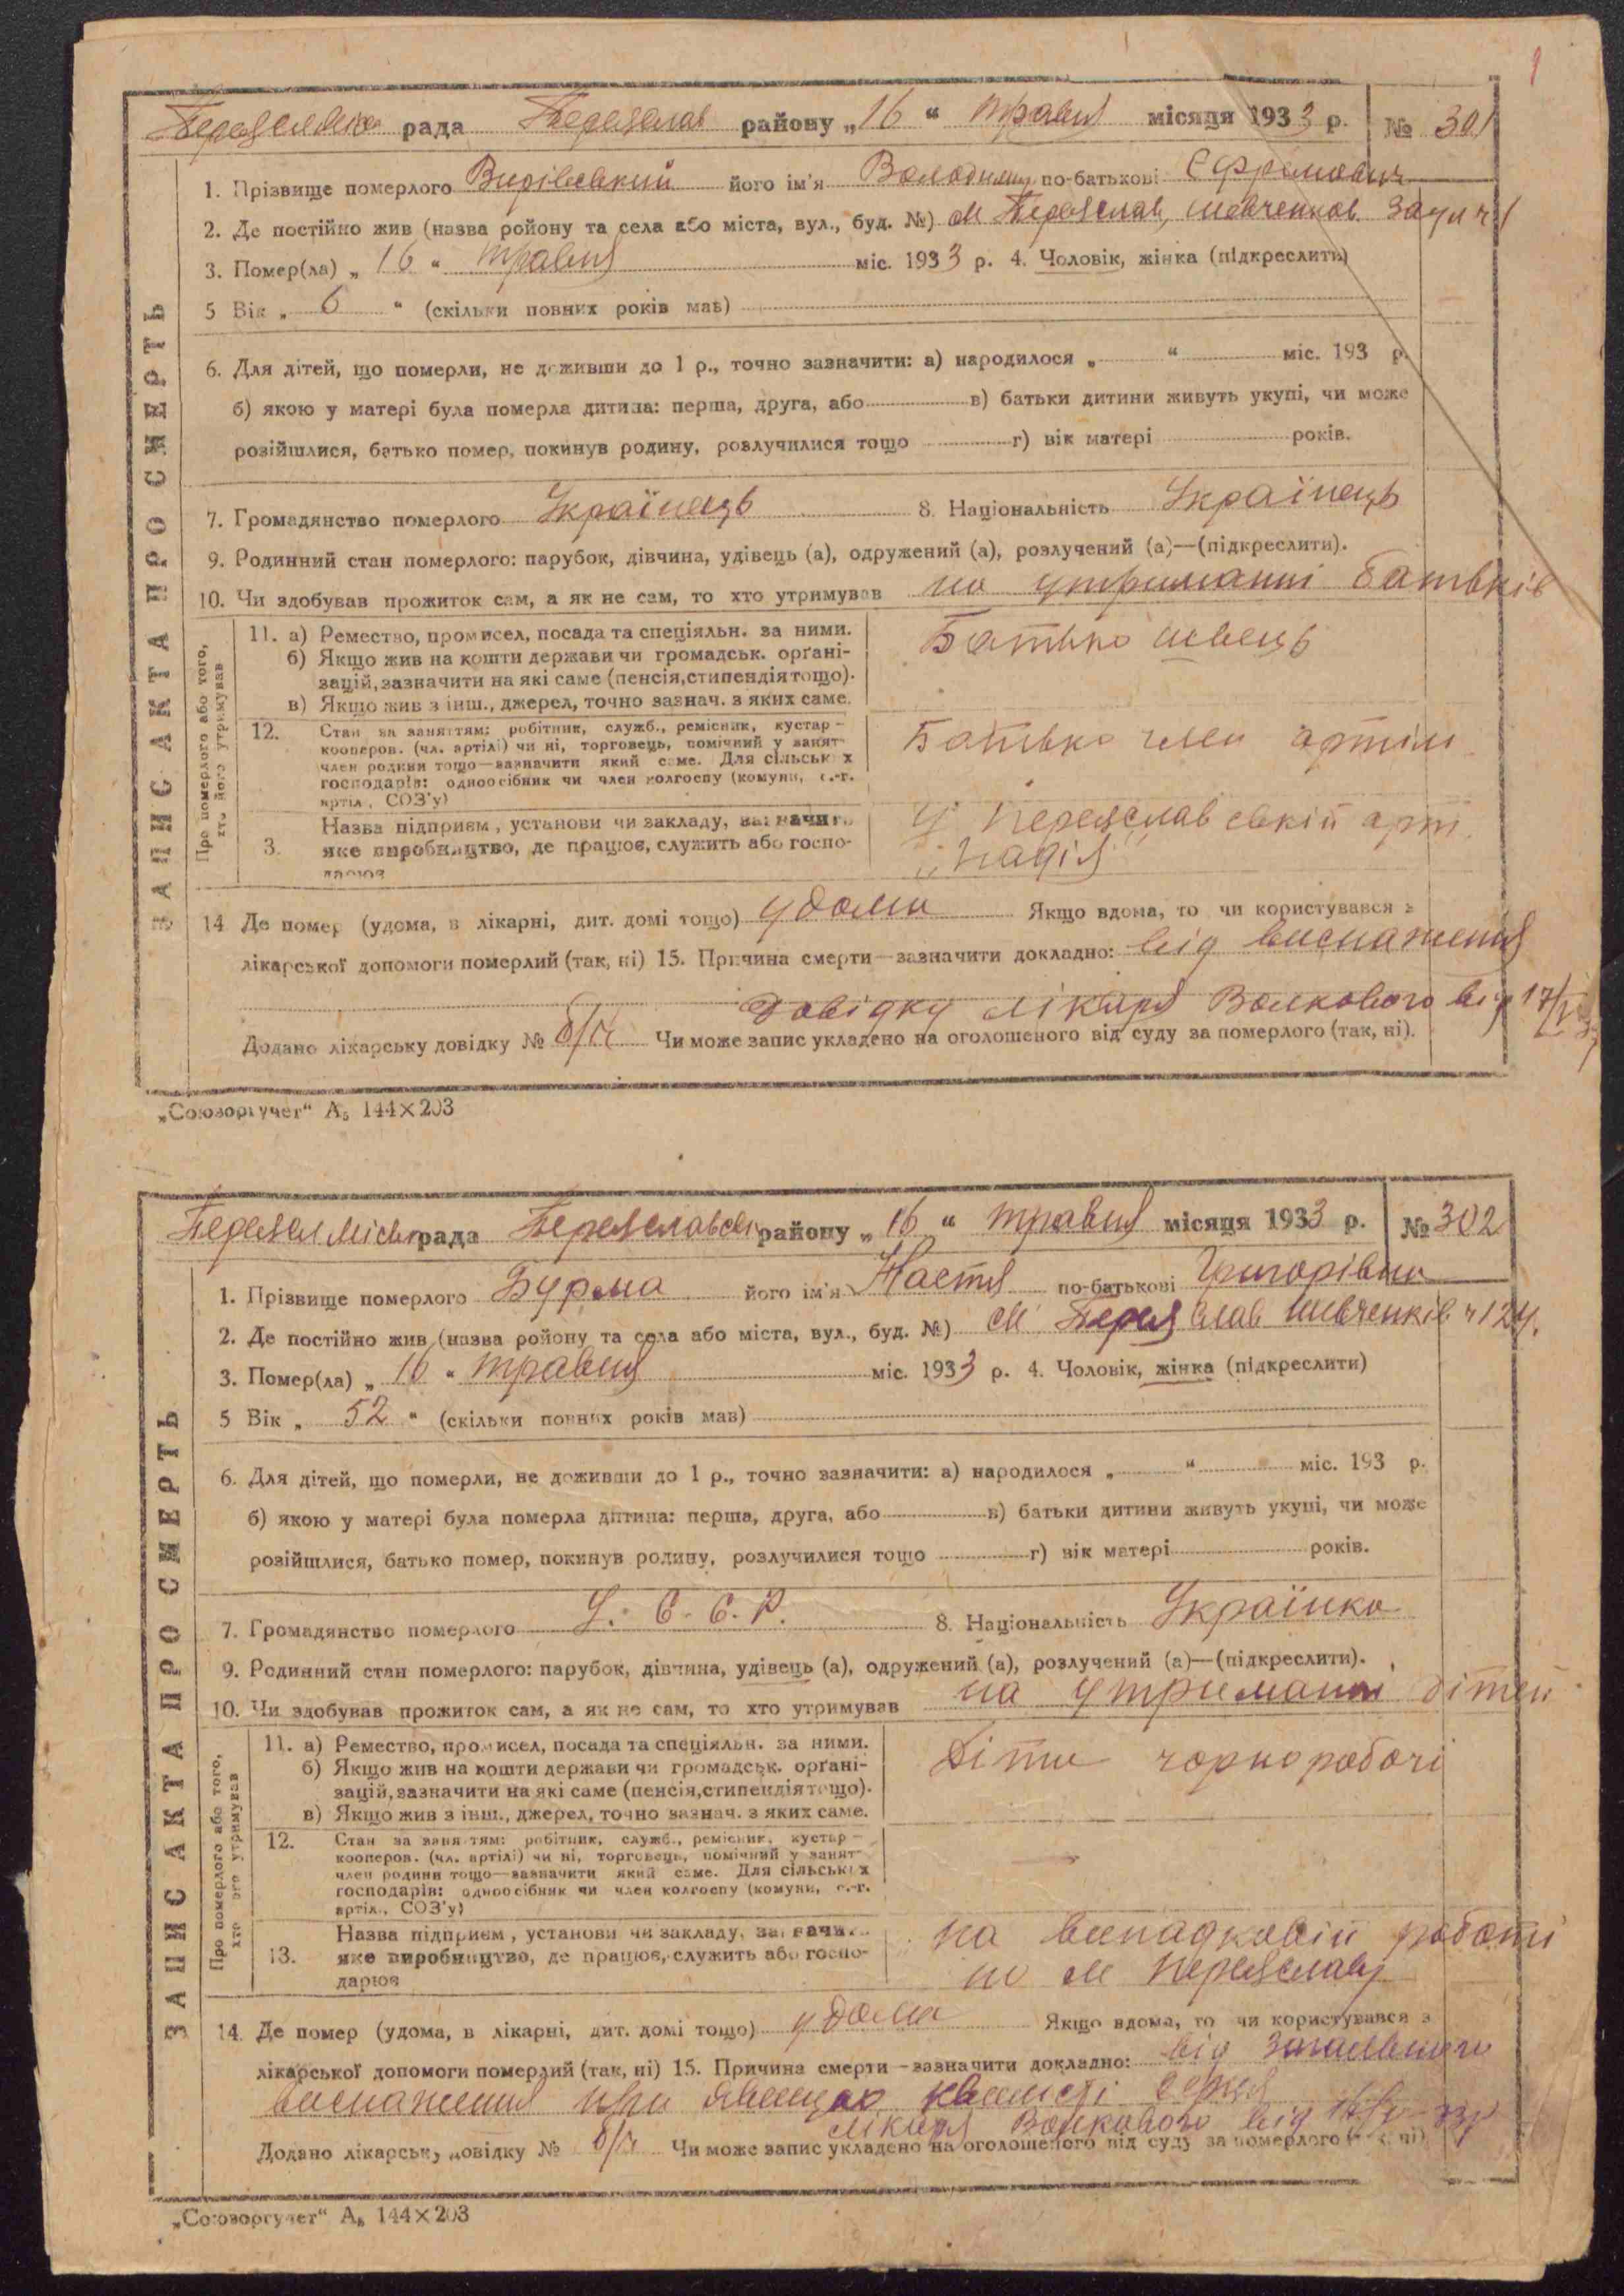 1
Переяславська рада Переяслав району „16“ травня місяця 1933 р. № 301
1. Прізвище померлого Вирівський його ім'я Володимир по-батькові Єфремович
2. Де постійно жив (назва ройону та села або міста, вул., буд. №) м Переяслав, Шевченков.
3. Помер(ла) „16“ травня міс. 1933 р. 4. Чоловік, жінка (підкреслить)
5 Вік „ 6 “ (скільки повних років мав)
6. Для дітей, що померли, не доживши до 1 р., точно зазначити: а) народилося „ “ міс. 193 р.
б) якою у матері була померла дитина: перша, друга, або в) батьки дитини живуть укупі, чи може
розійшлися, батько помер, покинув родину, розлучилися тощо г) вік матері років.
7. Громадянство померлого Українець 8. Національність Українець
9. Родинний стан померлого: парубок, дівчина, удівець (а), одружений (а), розлучений (а)—(підкреслити).
10. Чи здобував прожиток сам, а як не сам, то хто утримував на утриманні батьків
11. а) Ремество, промисел, посада та спеціяльн. за ними. Батько швець
б) Якщо жив на кошти держави чи громадськ. орґані-
зацій, зазначити на які саме (пенсія, стипендія тощо).
в) Якщо жив з інш., джерел, точно зазнач. з яких саме.
12. Стан за заняттям: робітник, служб., ремісник, кустар- Батько член артіли
кооперов. (чл. артілі) чи ні, торговець, помічний у занят-
член родини тощо—зазначити який саме. Для сільських
господарів: одноосібник чи член колгоспу (комуни, с.-г.
артіл., СОЗ'у)
Назва підприєм, установи чи закладу, зазначить У Переяславській арт.
3. яке виробництво, де працює, служить або госпо- „Надія“
дарює
Про померлого або того,
хто його утримував
ЗАПИС АКТА ПРО СМЕРТЬ
14 Де помер (удома, в лікарні, дит. домі тощо) удома Якщо вдома, то чи користувався з
лікарської допомоги померлий (так, ні) 15. Причина смерти—зазначити докладно: від виснаження
Довідку лікаря Волкового від 17/V
Додано лікарську довідку № б/н Чи може запис укладено на оголошеного від суду за померлого (так, ні).
„Союзоргучет“ А₅ 144×203
Переясл міськрада Переяславськ району „16“ травня місяця 1933 р. № 302
1. Прізвище померлого Бурма його ім'я Настя по-батькові Григорівна
2. Де постійно жив (назва ройону та села або міста, вул., буд. №) м. Переяслав Шевченків ч 124.
3. Помер(ла) „16“ травня міс. 1933 р. 4. Чоловік, жінка (підкреслити)
5 Вік „ 52 “ (скільки повних років мав)
6. Для дітей, що померли, не доживши до 1 р., точно зазначити: а) народилося „ “ міс. 193 р.
б) якою у матері була померла дитина: перша, друга, або в) батьки дитини живуть укупі, чи може
розійшлися, батько помер, покинув родину, розлучилися тощо г) вік матері років.
7. Громадянство померлого У. С. С. Р. 8. Національність Українка
9. Родинний стан померлого: парубок, дівчина, удівець (а), одружений (а), розлучений (а)—(підкреслити).
10. Чи здобував прожиток сам, а як не сам, то хто утримував на утриманні дітей
11. а) Ремество, промисел, посада та спеціяльн. за ними. Діти чорноробочі
б) Якщо жив на кошти держави чи громадськ. орґані-
зацій, зазначити на які саме (пенсія, стипендія тощо).
в) Якщо жив з інш., джерел, точно зазнач. з яких саме.
12. Стан за заняттям: робітник, служб., ремісник, кустар-
кооперов. (чл. артілі) чи ні, торговець, помічний у занят-
член родини тощо—зазначити який саме. Для сільських
господарів: одноосібник чи член колгоспу (комуни, с.-г.
артіл., СОЗ'у)
Назва підприєм, установи чи закладу, зазначить на випадковій роботі
13. яке виробництво, де працює, служить або госпо- по м Переяславу
дарює
Про померлого або того,
хто його утримував
ЗАПИС АКТА ПРО СМЕРТЬ
14. Де помер (удома, в лікарні, дит. домі тощо) удома Якщо вдома, то чи користувався з
лікарської допомоги померлий (так, ні) 15. Причина смерти—зазначити докладно: від загального
виснаження при явищах серця
лікаря Волкового від
Додано лікарську довідку № б/н Чи може запис укладено на оголошеного від суду за померлого (так, ні)
„Союзоргучет“ А₅ 144×203